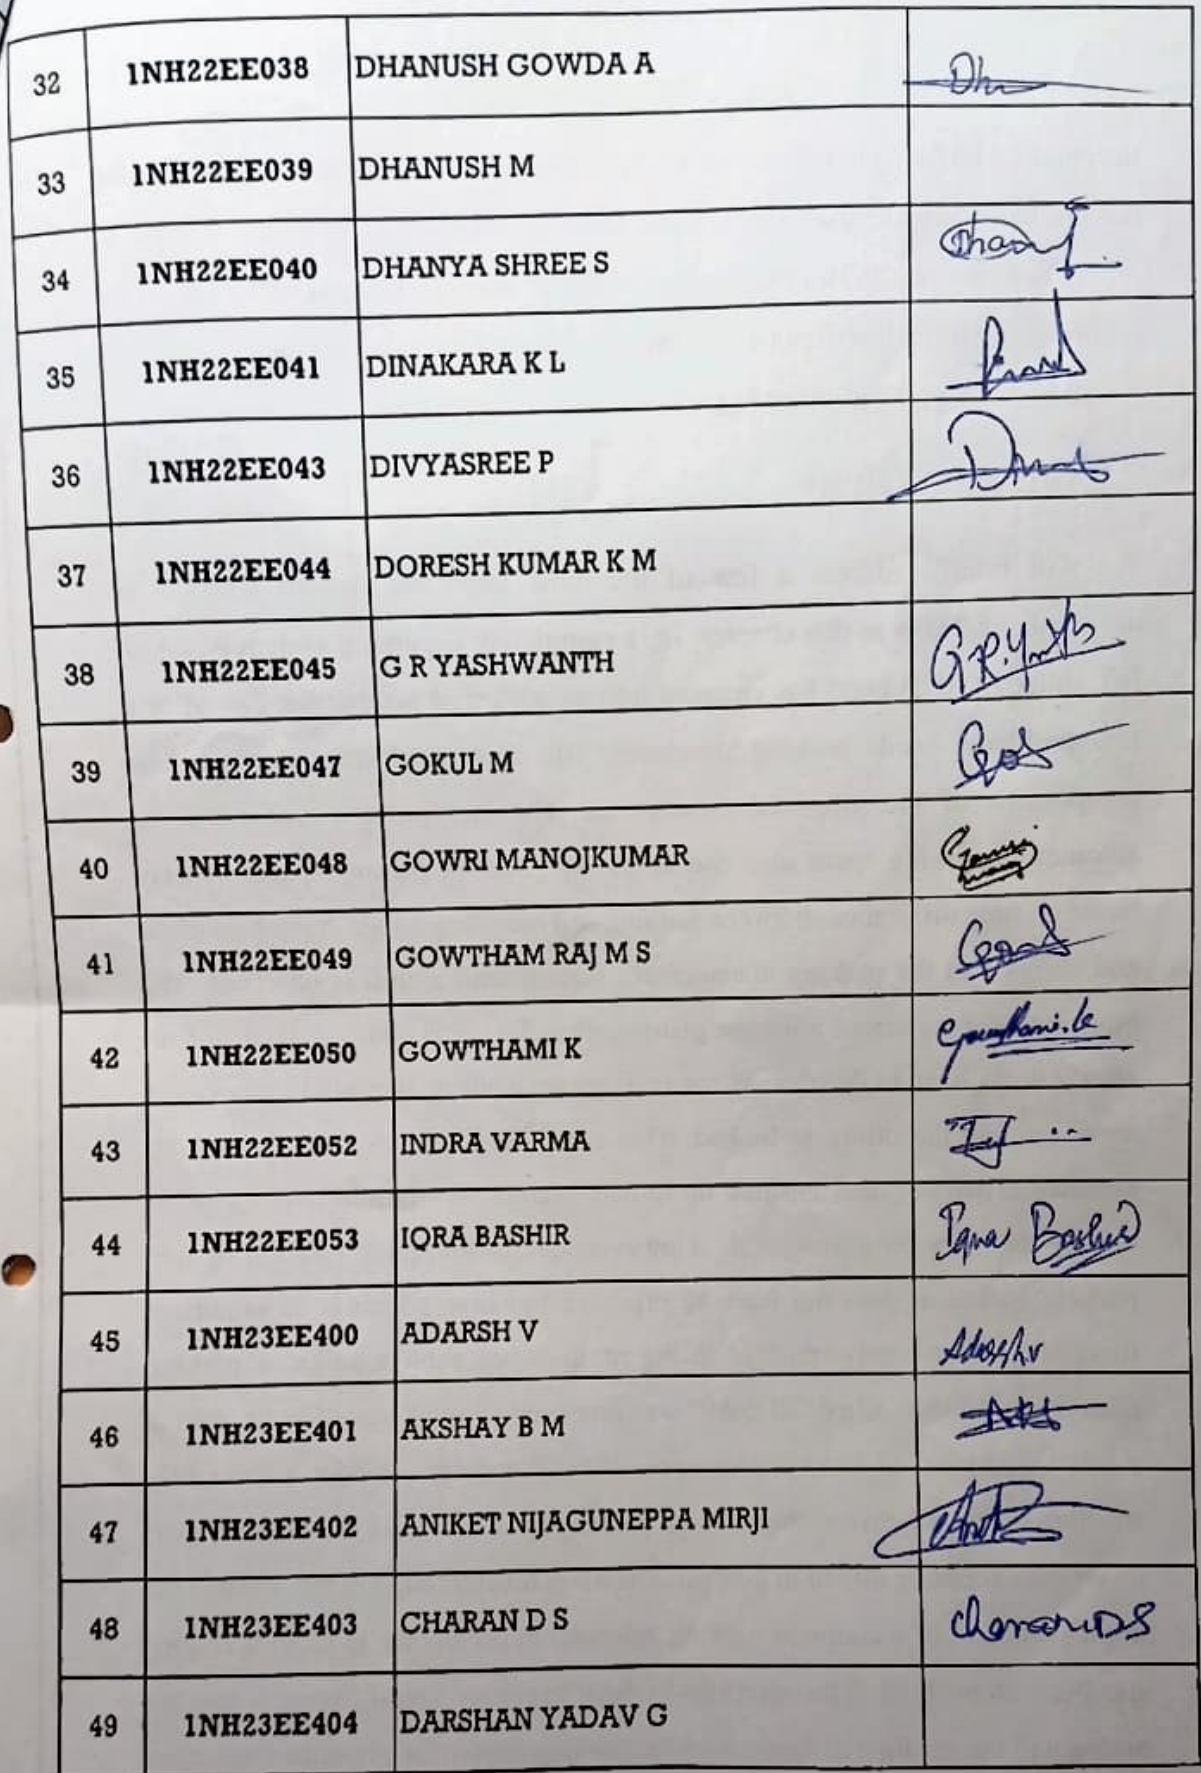 32 1NH22EE038 DHANUSH GOWDA A
33 1NH22EE039 DHANUSH M
34 1NH22EE040 DHANYA SHREE S
35 1NH22EE041 DINAKARA K L
36 1NH22EE043 DIVYASREE P
37 1NH22EE044 DORESH KUMAR K M
38 1NH22EE045 G R YASHWANTH
39 1NH22EE047 GOKUL M
40 1NH22EE048 GOWRI MANOJKUMAR
41 1NH22EE049 GOWTHAM RAJ M S
42 1NH22EE050 GOWTHAMI K Gowthami.k
43 1NH22EE052 INDRA VARMA
44 1NH22EE053 IQRA BASHIR Iqra Bashir
45 1NH23EE400 ADARSH V Adarsh.v
46 1NH23EE401 AKSHAY B M
47 1NH23EE402 ANIKET NIJAGUNEPPA MIRJI
48 1NH23EE403 CHARAN D S charan DS
49 1NH23EE404 DARSHAN YADAV G